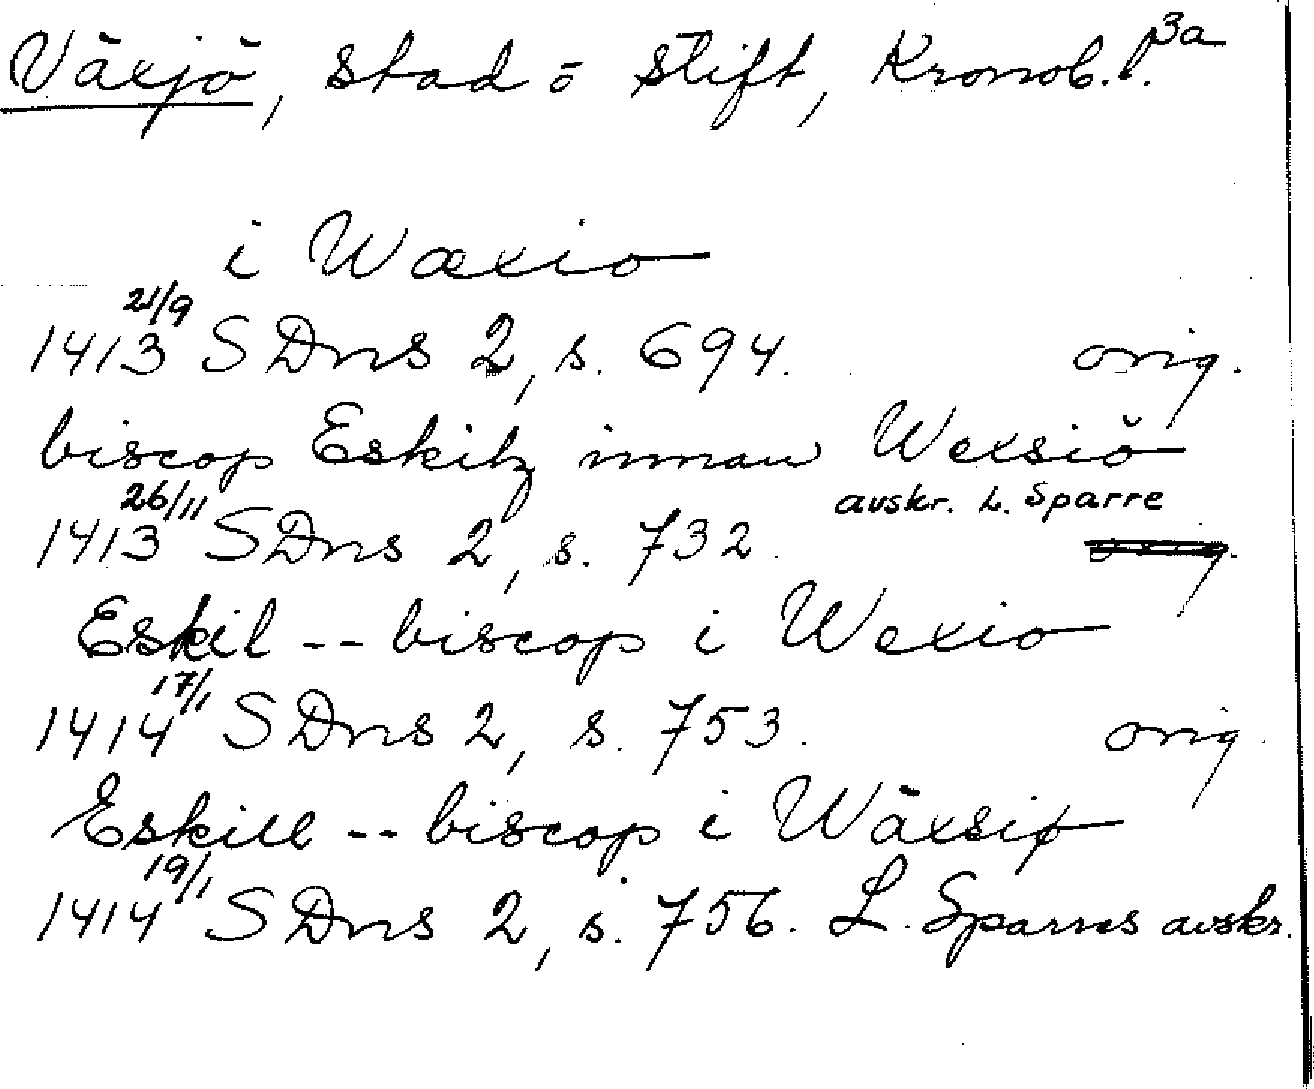 Växjö, stad o stift, Kronob. l. 3a
i Wæxio
1413 21/9 SDns 2, s. 694. orig.
biscop Eskilz innan Wexsiö
1413 26/11 SDns 2, s. 732. avskr. L. Sparre orig.
Eskil -- biscop i Wexio
1414 17/1 SDns 2, s. 753. orig.
Eskill -- biscop i Wäxsiø
1414 19/1 SDns 2, s. 756. L. Sparres avskr.